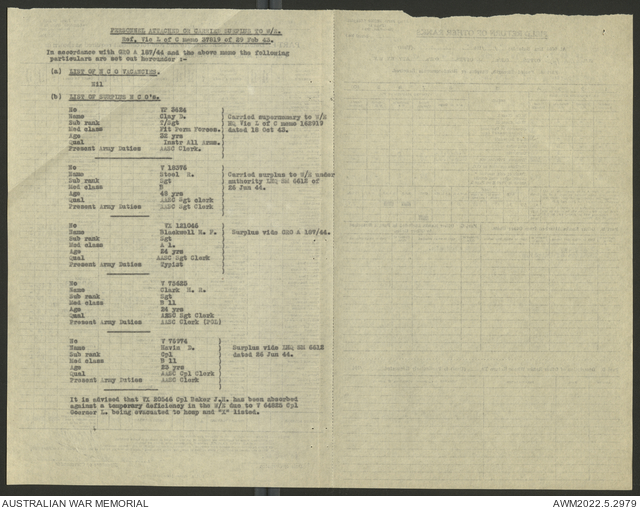 PERSONNEL ATTACHED OR CARRIED SURPLUS TO W/E.
Ref. Vic L of C memo 27819 of 29 Feb 43.
In accordance with GRO A 187/44 and the above memo the following
particulars are set out hereunder :-
(a) LIST OF N C O VACANCIES.
Nil
(b) LIST OF SURPLUS N C O's.
No VP 3424
Name Clay D.
Sub rank T/Sgt
Med class Fit Perm Forces.
Age 32 yrs
Qual Instr All Arms.
Present Army Duties AASC Clerk.
Carried supernumary to W/E
HQ Vic L of C memo 162919
dated 18 Oct 43.
No V 18375
Name Steel R.
Sub rank Sgt
Med class B
Age 49 yrs
Qual AASC Sgt clerk
Present Army Duties AASC Sgt Clerk
Carried surplus to W/E under
authority LHQ SM 6612 of
26 Jan 44.
No VX 121046
Name Blackwell N. P.
Sub rank Sgt
Med class A 1.
Age 24 yrs
Qual AASC Sgt Clerk
Present Army Duties Typist
Surplus vide GRO A 187/44.
No V 73425
Name Clark H. R.
Sub rank Sgt
Med class B 11
Age 24 yrs
Qual AASC Sgt Clerk
Present Army Duties AASC Clerk (POL)
No V 76974
Name Nevin D.
Sub rank Cpl
Med class B 11
Age 23 yrs
Qual AASC Cpl Clerk
Present Army Duties AASC Clerk
Surplus vide LHQ SM 6612
dated 26 Jan 44.
It is advised that VX 20546 Cpl Baker J.H. has been absorbed
against a temporary deficiency in the W/E due to V 64825 Cpl
Goerner L. being evacuated to hosp and "X" listed.
AUSTRALIAN WAR MEMORIAL
AWM2022.5.2979